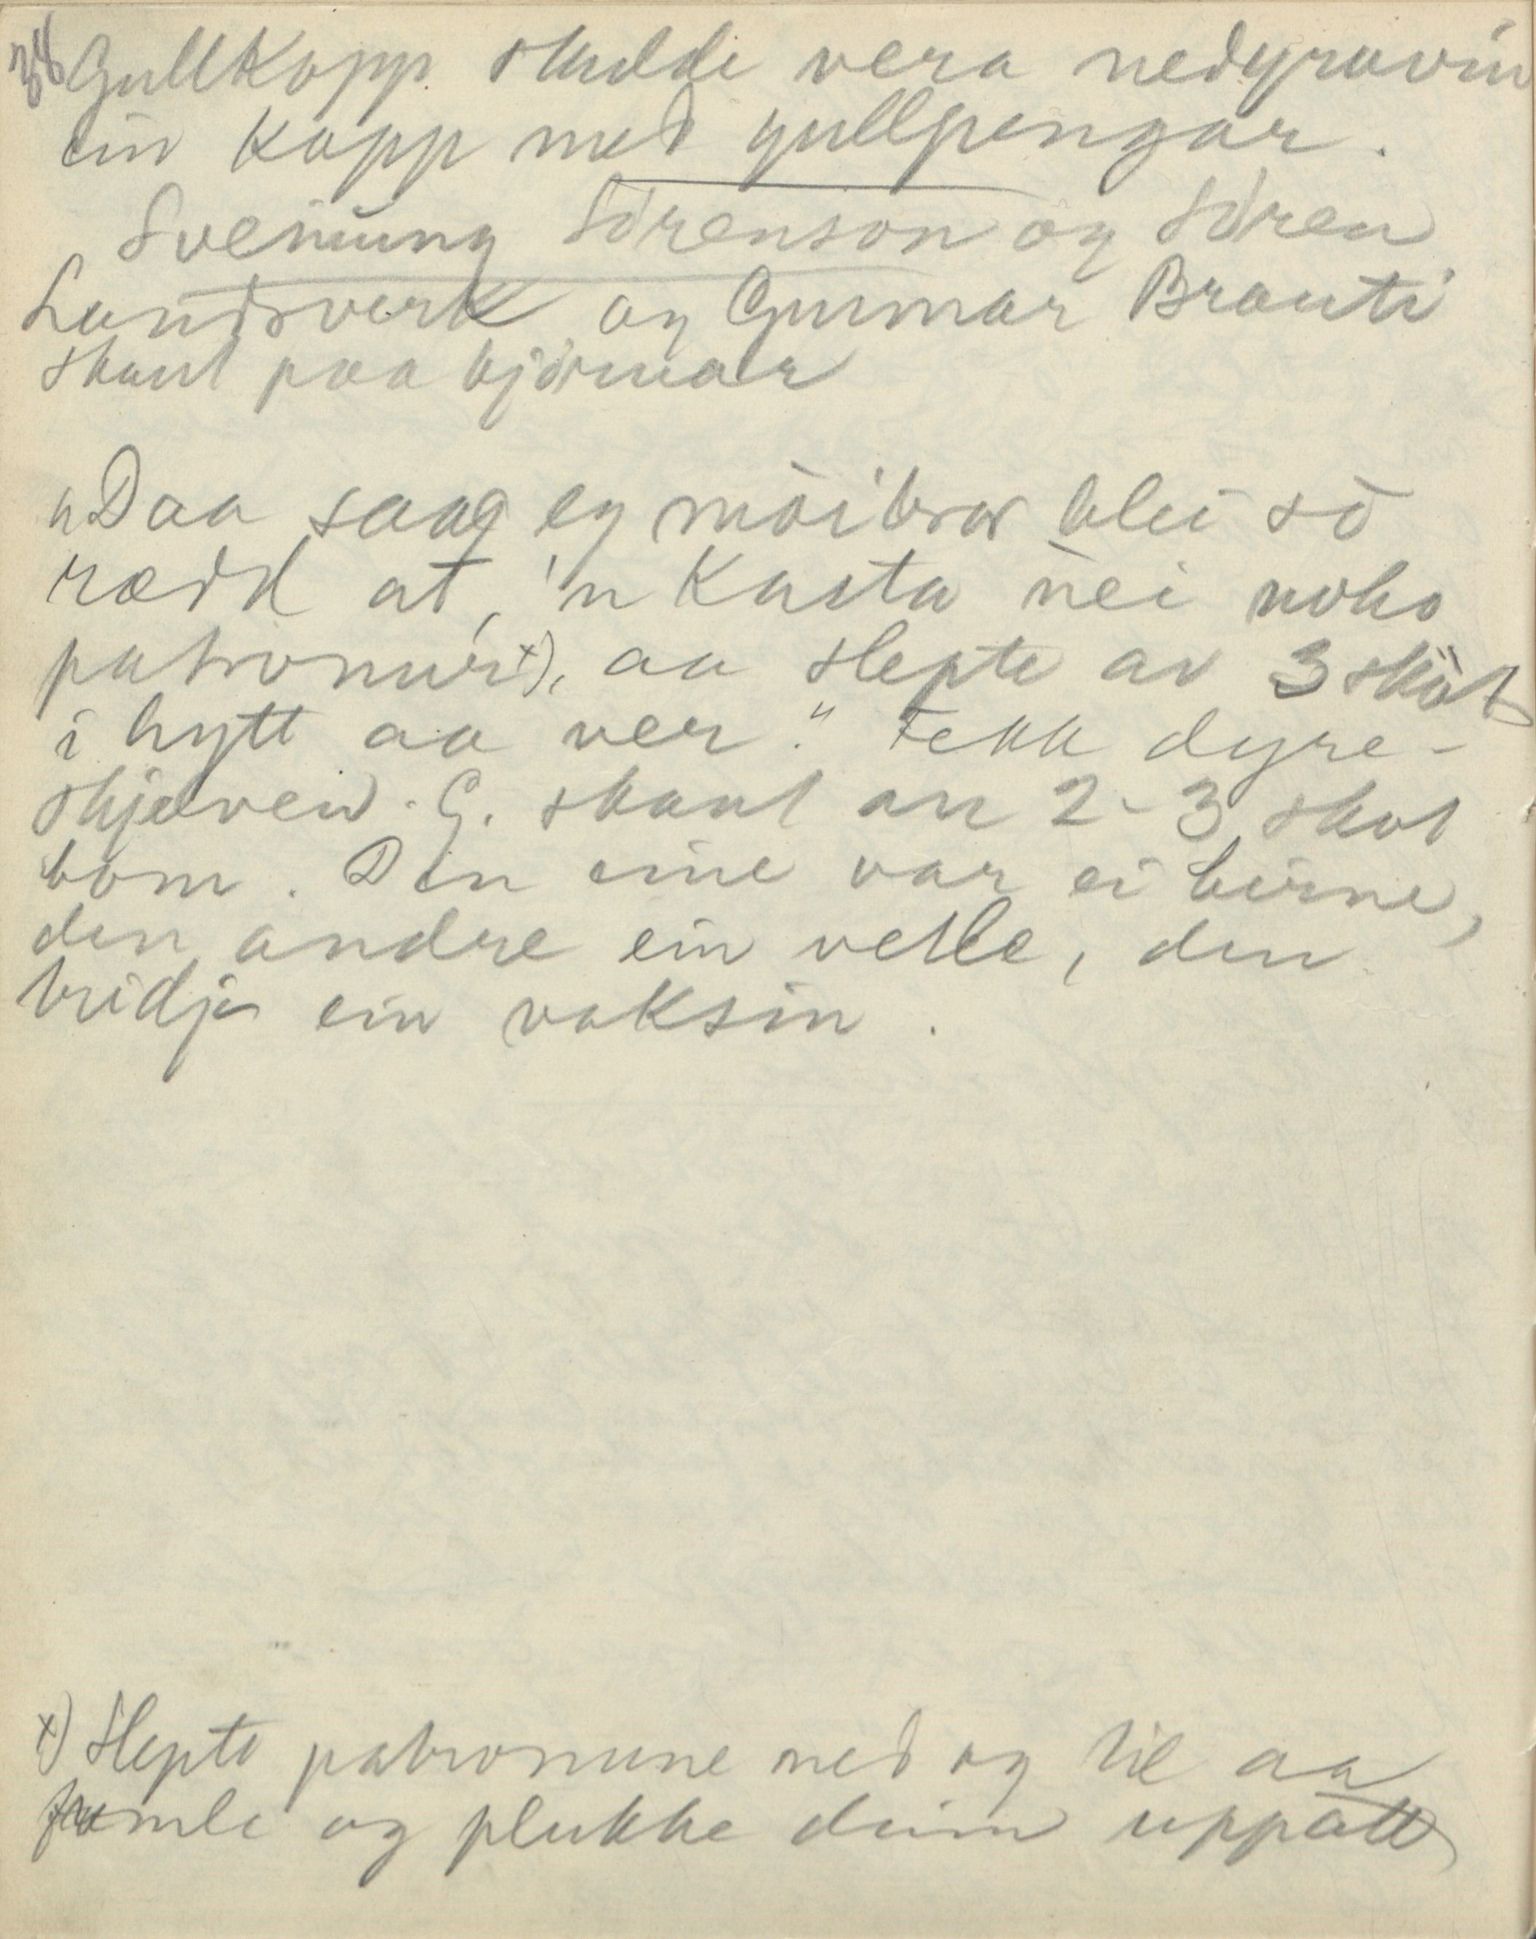 38 Gullkopp skulde vera nedgravin
ein kopp med gullpengar.
Sveinung Sörenson og Sören
Landsverk og Gunnar Brauti
skaut paa björnar
"Daa saag eg mòibror blei sò
rædd at 'n kasta nèi noko
patronur x), aa slepte av 3 sköt
i hytt aa ver." Fekk dyre-
skjelven. G. skaut au 2-3 skot
bom. Den eine var ei birne,
den andre ein vetle, den
tridje ein vaksin.
x) Slepte patronune ned og til aa
fumle og plukke deim uppatt